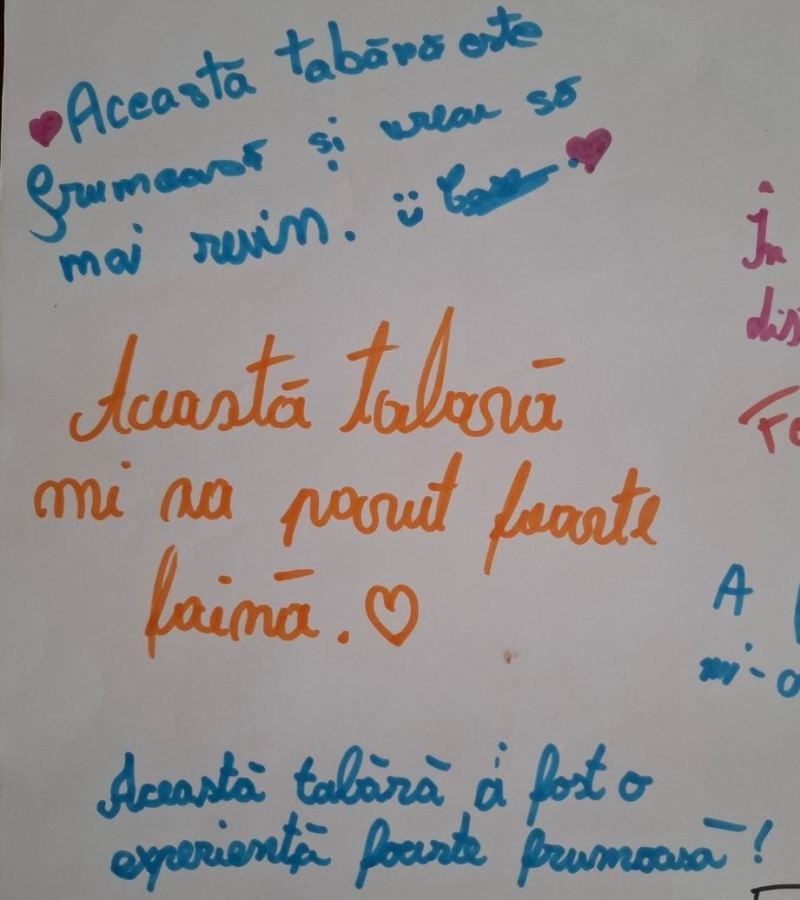 Această tabără este
frumoasă și vreau să
mai revin. ü
Această tabară
mi sa parut foarte
faină. ♡
Această tabără a fost o
experiență foarte frumoasă!
În
dis
Fe
A
mi-a